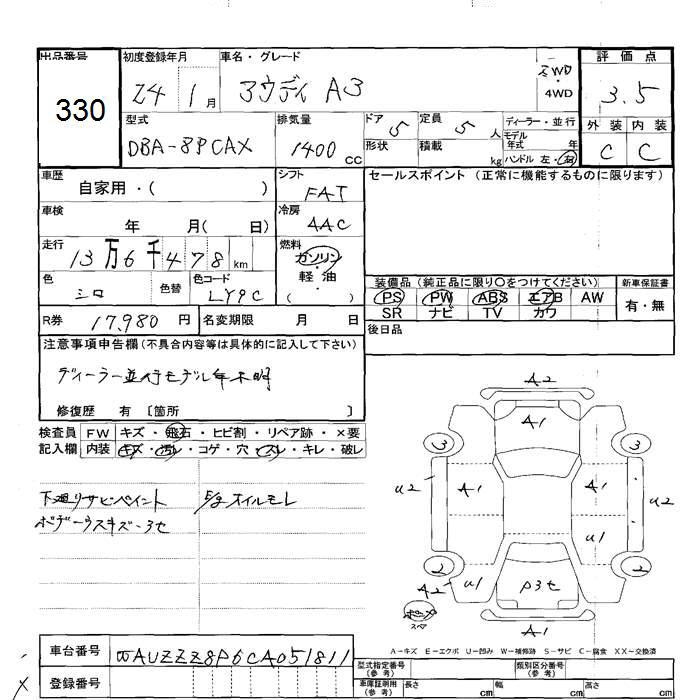 出品番号 初度登録年月 車名・グレード 評価点
330 24 1月 アウディ A3 2WD・4WD 3.5
型式 排気量 ドア 5 定員 5人 ディーラー・並行 外装 内装
DBA-8PCAX 1400cc 形状 積載 kg モデル年式 年 ハンドル 左・右 C C
車歴 自家用・( ) シフト FAT セールスポイント (正常に機能するものに限ります)
車検 年 月( 日) 冷房 AAC
走行 13万6千478km 燃料 ガソリン・軽・油 ( )
色 シロ 色替 色コード LY9C 装備品 (純正品に限り○をつけてください) 新車保証書
PS PW ABS エアB AW 有・無
SR ナビ TV カワ
R券 17,980円 名変期限 月 日 後日品
注意事項申告欄 (不具合内容等は具体的に記入して下さい)
ディーラー並行モデル年不明
修復歴 有 〔箇所 〕
検査員 FW キズ・飛石・ヒビ割・リペア跡・×要
記入欄 内装 キズ・汚レ・コゲ・穴・スレ・キレ・破レ
下廻りサビペイント E/gオイルモレ
ボデーウスキズ・3セ
A2
A1
3 3
U2 A1 A1 U2
U1
2 2
A2 U1 P3セ
スペア
A1
A-キズ E-エクボ U-凹み W-補修跡 S-サビ C-腐食 XX-交換済
車台番号 WAUZZZ8P6CA051811
登録番号
型式指定番号(参考) 類別区分番号(参考)
車庫証明用(参考) 長さ cm 幅 cm 高さ cm